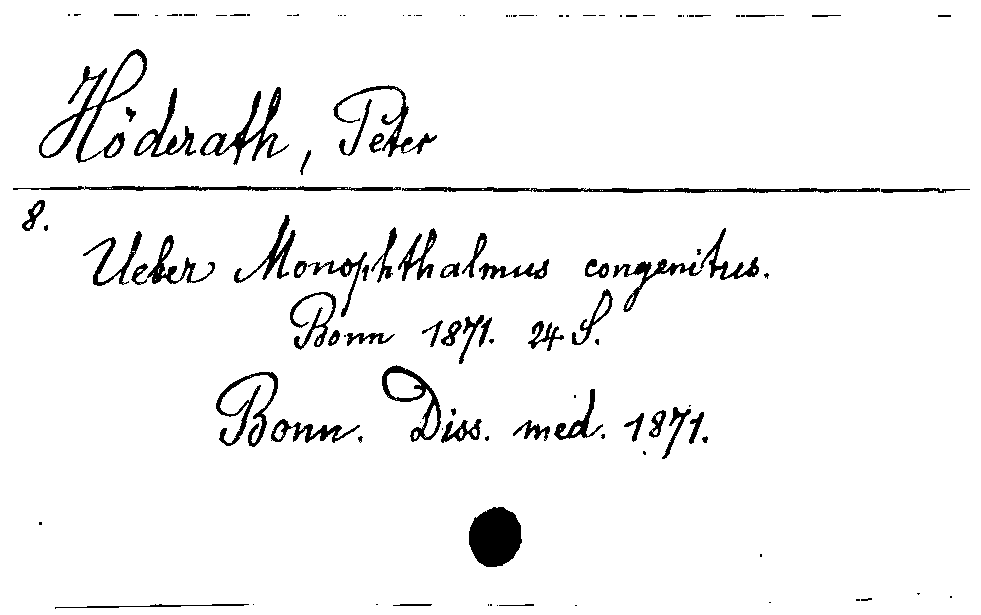 Höderath, Peter
8.
Ueber Monophthalmus congenitus.
Bonn 1871. 24 S.
Bonn. Diss. med. 1871.